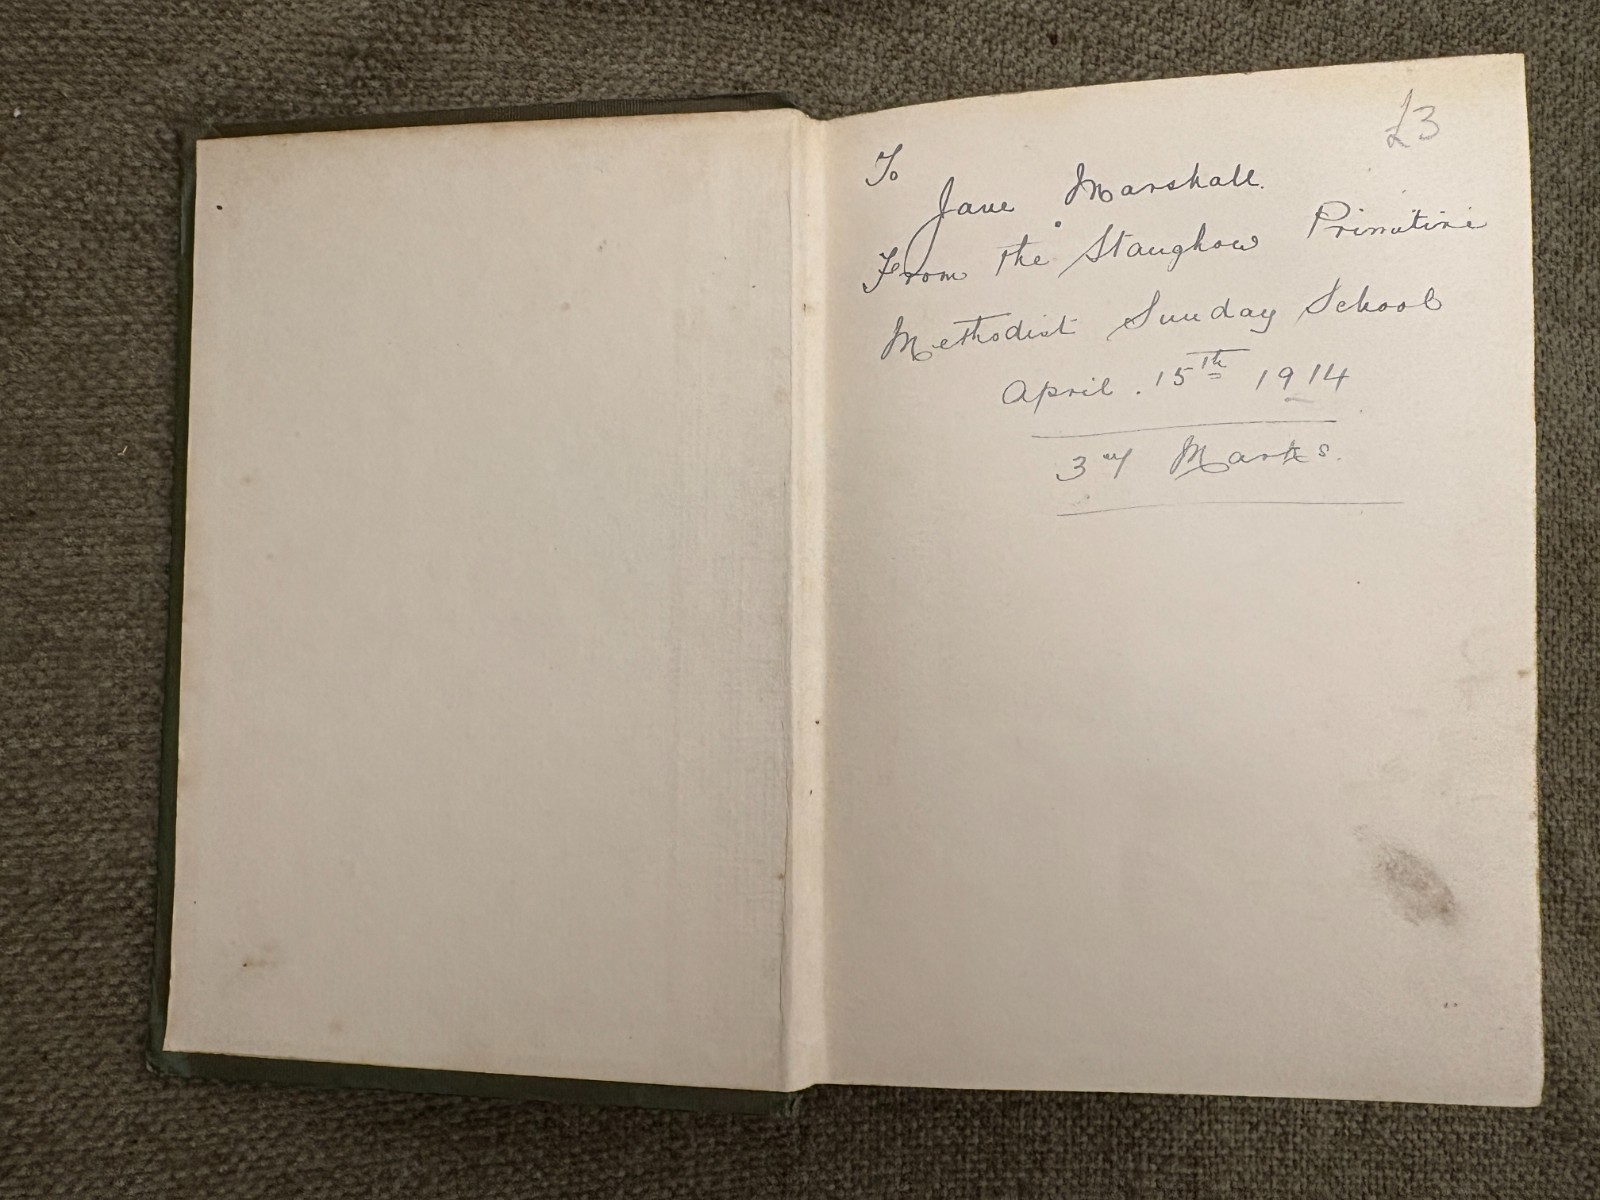 £3
To
Jane Marshall.
From the Stanghow Primitive
Methodist Sunday School
April. 15th 1914
Marks.